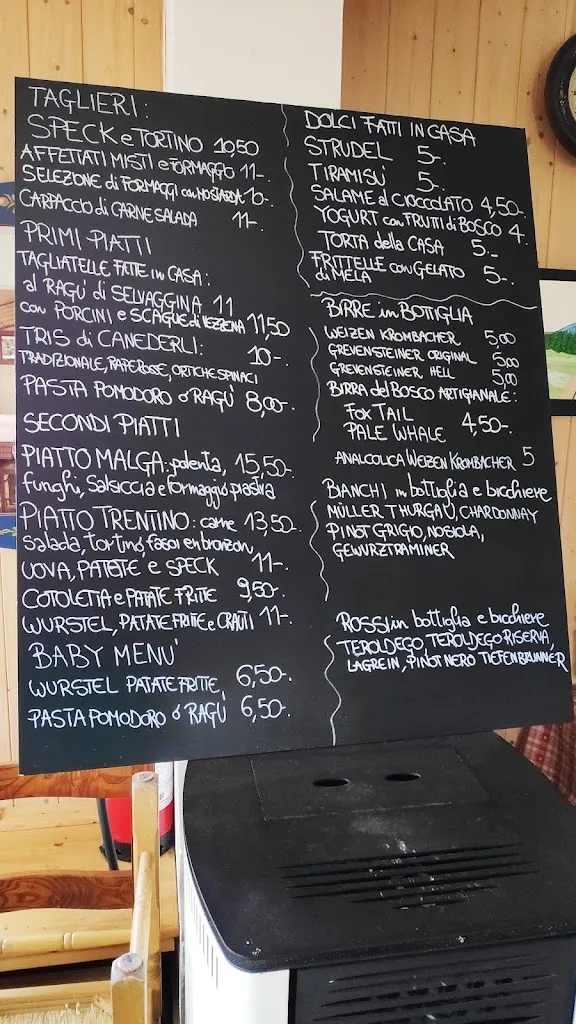 TAGLIERI:
SPECK e TORTINO 10,50
AFFETTATI MISTI e FORMAGGIO 11-.
SELEZIONE di FORMAGGI con MOSTARDA 10-.
CARPACCIO di CARNE SALADA 11-.
PRIMI PIATTI
TAGLIATELLE FATTE in CASA:
al RAGÙ di SELVAGGINA 11
con PORCINI e SCAGLIE di VEZZENA 11,50
TRIS di CANEDERLI: 10-.
TRADIZIONALE, RAPE ROSSE, ORTICHE SPINACI
PASTA POMODORO o RAGÙ 8,00-.
SECONDI PIATTI
PIATTO MALGA: polenta, 15,50-.
funghi, Salsiccia e formaggio piastra
PIATTO TRENTINO: carne 13,50-.
salada, tortino, fasoi en bronzon,
UOVA, PATATE e SPECK 11-.
COTOLETTA e PATATE FRITTE 9,50-.
WURSTEL, PATATE FRITTE e CRAUTI 11-.
BABY MENU'
WURSTEL PATATE FRITTE, 6,50-.
PASTA POMODORO o RAGÙ 6,50-.
DOLCI FATTI IN CASA
STRUDEL 5-.
TIRAMISU' 5-.
SALAME al CIOCCOLATO 4,50-.
YOGURT con FRUTTI di BOSCO 4.
TORTA della CASA 5-.
FRITTELLE con GELATO 5-.
di MELA
BIRRE in BOTTIGLIA
WEIZEN KROMBACHER 5,00
GREVENSTEINER ORIGINAL 5,00
GREVENSTEINER HELL 5,00
BIRRA del BOSCO ARTIGIANALE:
FOX TAIL
PALE WHALE 4,50-.
ANALCOLICA WEIZEN KROMBACHER 5
BIANCHI in bottiglia e bicchiere
MÜLLER THURGAU, CHARDONNAY
PINOT GRIGIO, NOSIOLA,
GEWURZTRAMINER
ROSSI in bottiglia e bicchiere
TEROLDEGO, TEROLDEGO RISERVA,
LAGREIN, PINOT NERO TIEFENBRUNNER